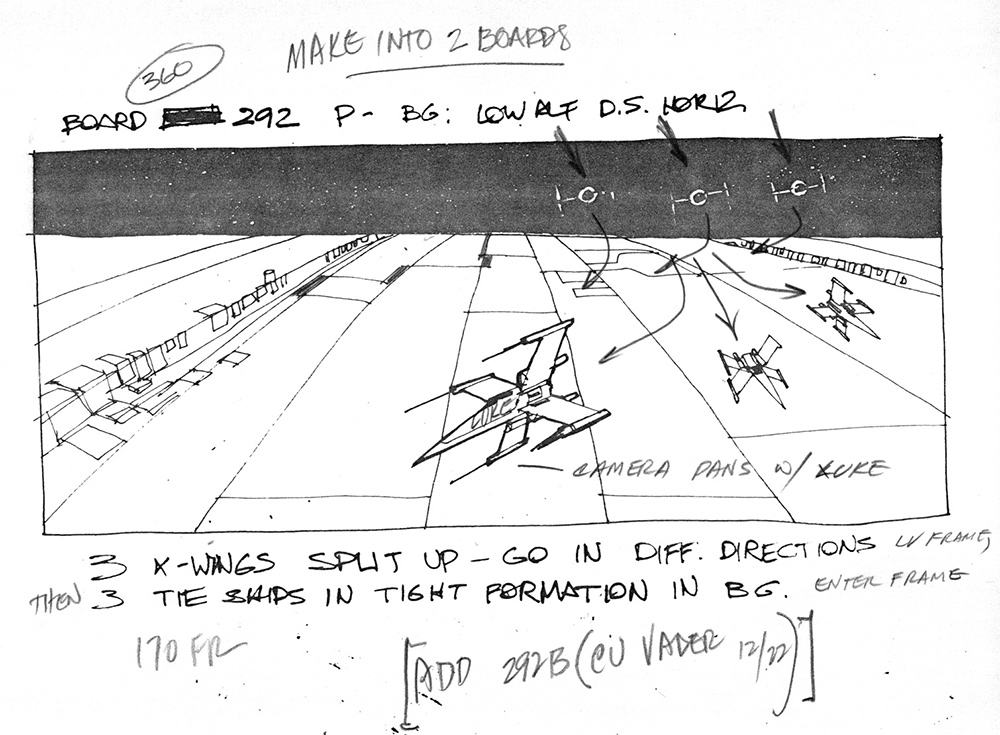 MAKE INTO 2 BOARDS
360
BOARD 292 P- BG: LOW ALT D.S. HORIZ
LUKE
CAMERA PANS W/ LUKE
3 X-WINGS SPLIT UP - GO IN DIFF. DIRECTIONS LV FRAME,
THEN 3 TIE SHIPS IN TIGHT FORMATION IN BG. ENTER FRAME
170 FR
[ADD 292B (CU VADER 12/22)]